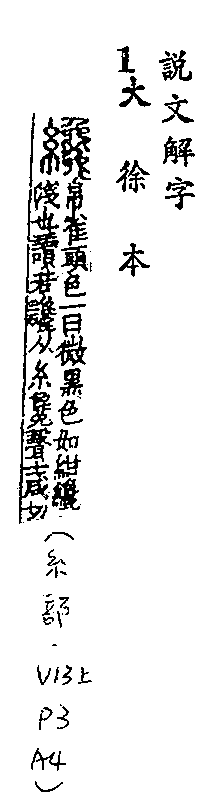 説文解字
1大徐本
纔帛雀頭色一曰微黑色如紺纔
淺也讀若讒从糸毚聲士咸切
(糸部.
V13上
P3
A4)